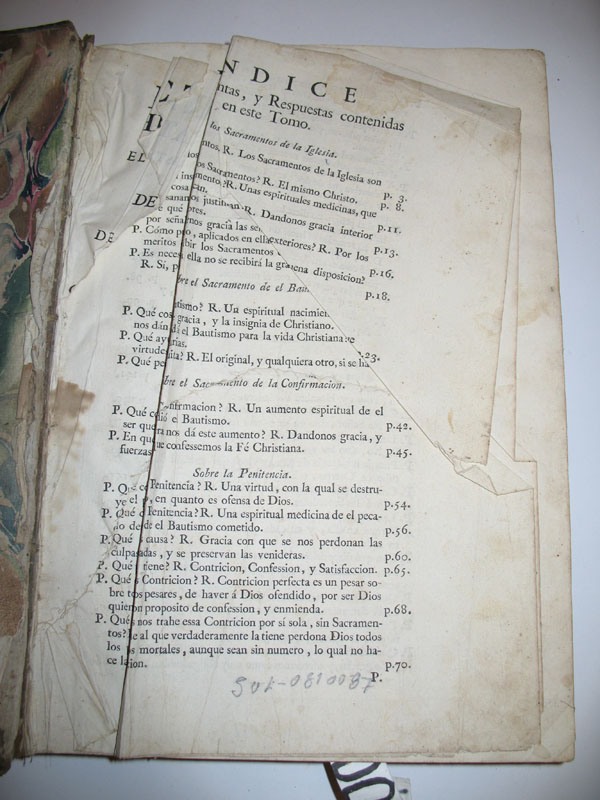 NDICE
ntas, y Respuestas contenidas
en este Tomo.
los Sacramentos de la Iglesia.
ntos, R. Los Sacramentos de la Iglesia son
p. 3.
os Sacramentos? R. El mismo Christo. p. 8.
mento? R. Unas espirituales medicinas, que
justifican. p.11.
R. Dandonos gracia interior
p.13.
por seña exteriores? R. Por los
P. Cómo aplicados en ella p.16.
meritos
P. Es neces ella no se recibirá la gra ena disposicion?
R. Sí, p p.18.
bre el Sacramento de el Bau
P. Qué cos tismo? R. Un espiritual nacimien
nos dán gracia, y la insignia de Christiano.
P. Qué ay el Bautismo para la vida Christiana
virtude 23.
P. Qué pe uita? R. El original, y qualquiera otro, si se ha
bre el Sac mento de la Confirmacion.
P. Qué c nfirmacion? R. Un aumento espiritual de el
ser que el Bautismo. p.42.
P. En qu nos dá este aumento? R. Dandonos gracia, y
fuerzas que confessemos la Fé Christiana. p.45.
Sobre la Penitencia.
P. Qué Penitencia? R. Una virtud, con la qual se destru-
ye el p en quanto es ofensa de Dios. p.54.
P. Qué Penitencia? R. Una espiritual medicina de el peca-
do de el Bautismo cometido. p.56.
P. Qué causa? R. Gracia con que se nos perdonan las
culpas das, y se preservan las venideras. p.60.
P. Qué tiene? R. Contricion, Confession, y Satisfaccion. p.65.
P. Qué Contricion? R. Contricion perfecta es un pesar so-
bre tos pesares, de haver á Dios ofendido, por ser Dios
quien proposito de confession, y enmienda. p.68.
P. Qué nos trahe essa Contricion por sí sola, sin Sacramen-
tos? al que verdaderamente la tiene perdona Dios todos
los mortales, aunque sean sin numero, lo qual no ha-
ce la ion. p.70.
P.
7800180-105